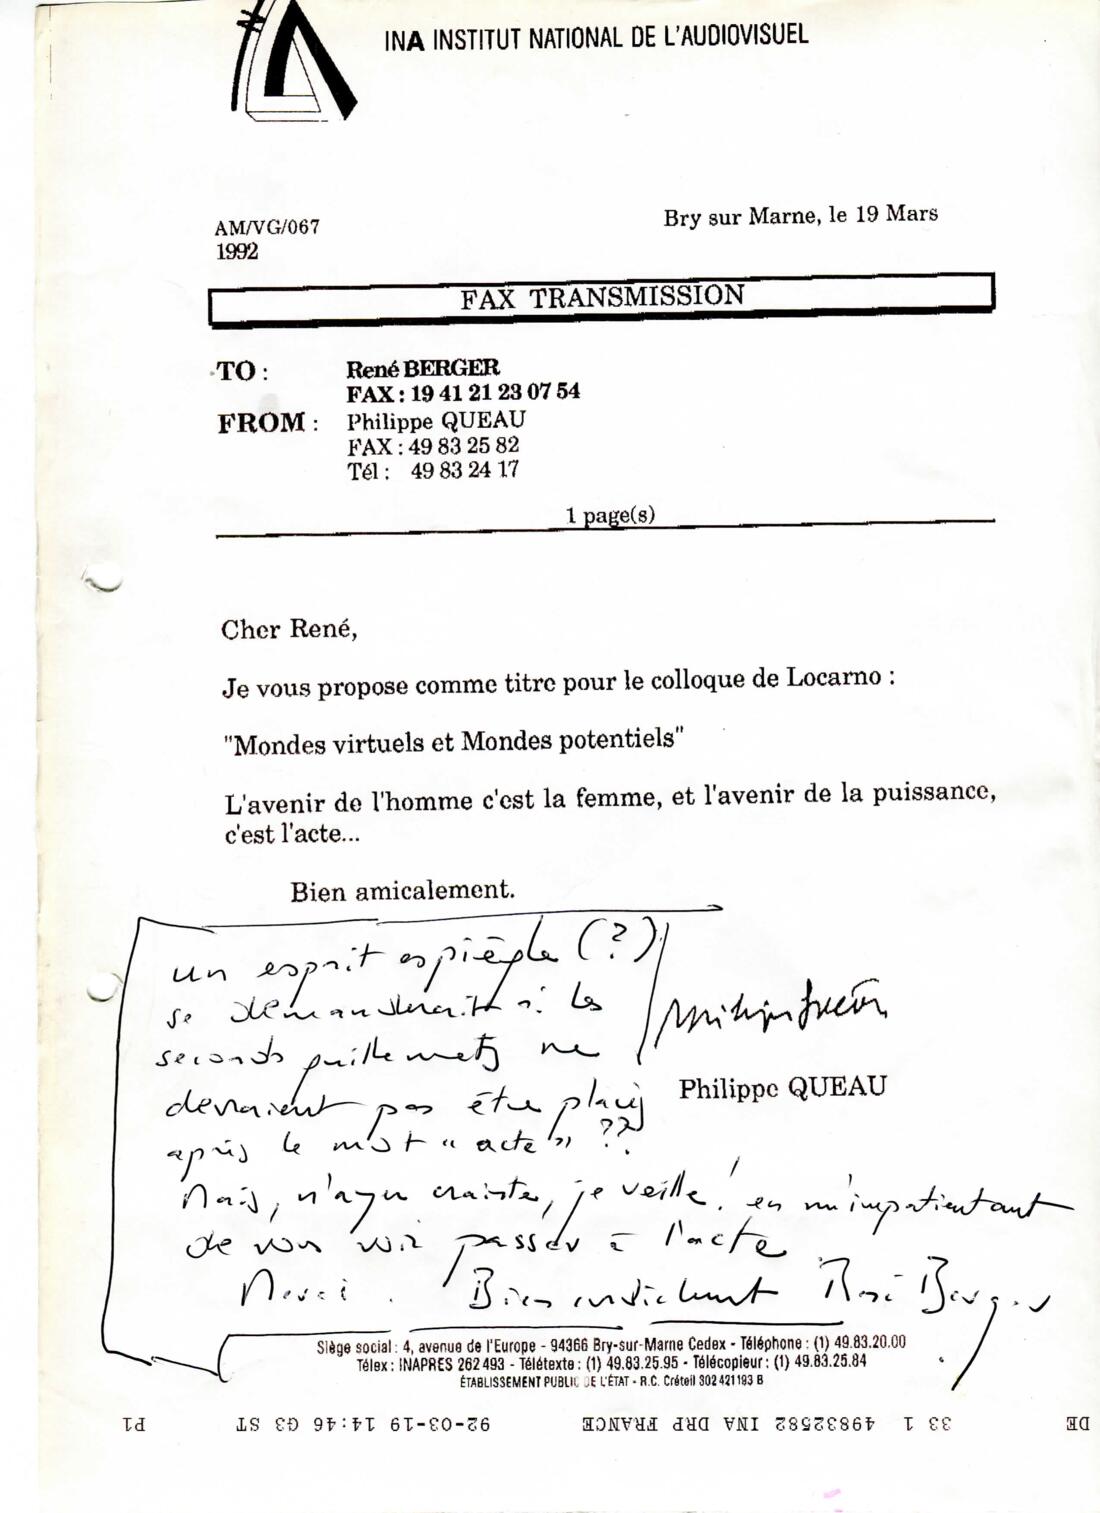 INA INSTITUT NATIONAL DE L'AUDIOVISUEL
AM/VG/067
1992
Bry sur Marne, le 19 Mars
FAX TRANSMISSION
TO : René BERGER
FAX : 19 41 21 23 07 54
FROM : Philippe QUEAU
FAX : 49 83 25 82
Tél : 49 83 24 17
1 page(s)
Cher René,
Je vous propose comme titre pour le colloque de Locarno :
"Mondes virtuels et Mondes potentiels"
L'avenir de l'homme c'est la femme, et l'avenir de la puissance,
c'est l'acte...
Bien amicalement.
un esprit espiègle (?)
se demanderait si les
seconds guillemets ne
devraient pas être placés
après le mot "acte" ??
Philippe QUEAU
Mais, n'ayez crainte, je veille ! en m'impatientant
de vous voir passer à l'acte
Merci. Bien cordialement René Berger
Siège social : 4, avenue de l'Europe - 94366 Bry-sur-Marne Cedex - Téléphone : (1) 49.83.20.00
Télex : INAPRES 262 493 - Télétexte : (1) 49.83.25.95 - Télécopieur : (1) 49.83.25.84
ÉTABLISSEMENT PUBLIC DE L'ÉTAT - R.C. Créteil 302 421 193 B
DE 33 1 49832582 INA DRP FRANCE 92-03-19 14:46 G3 ST P1